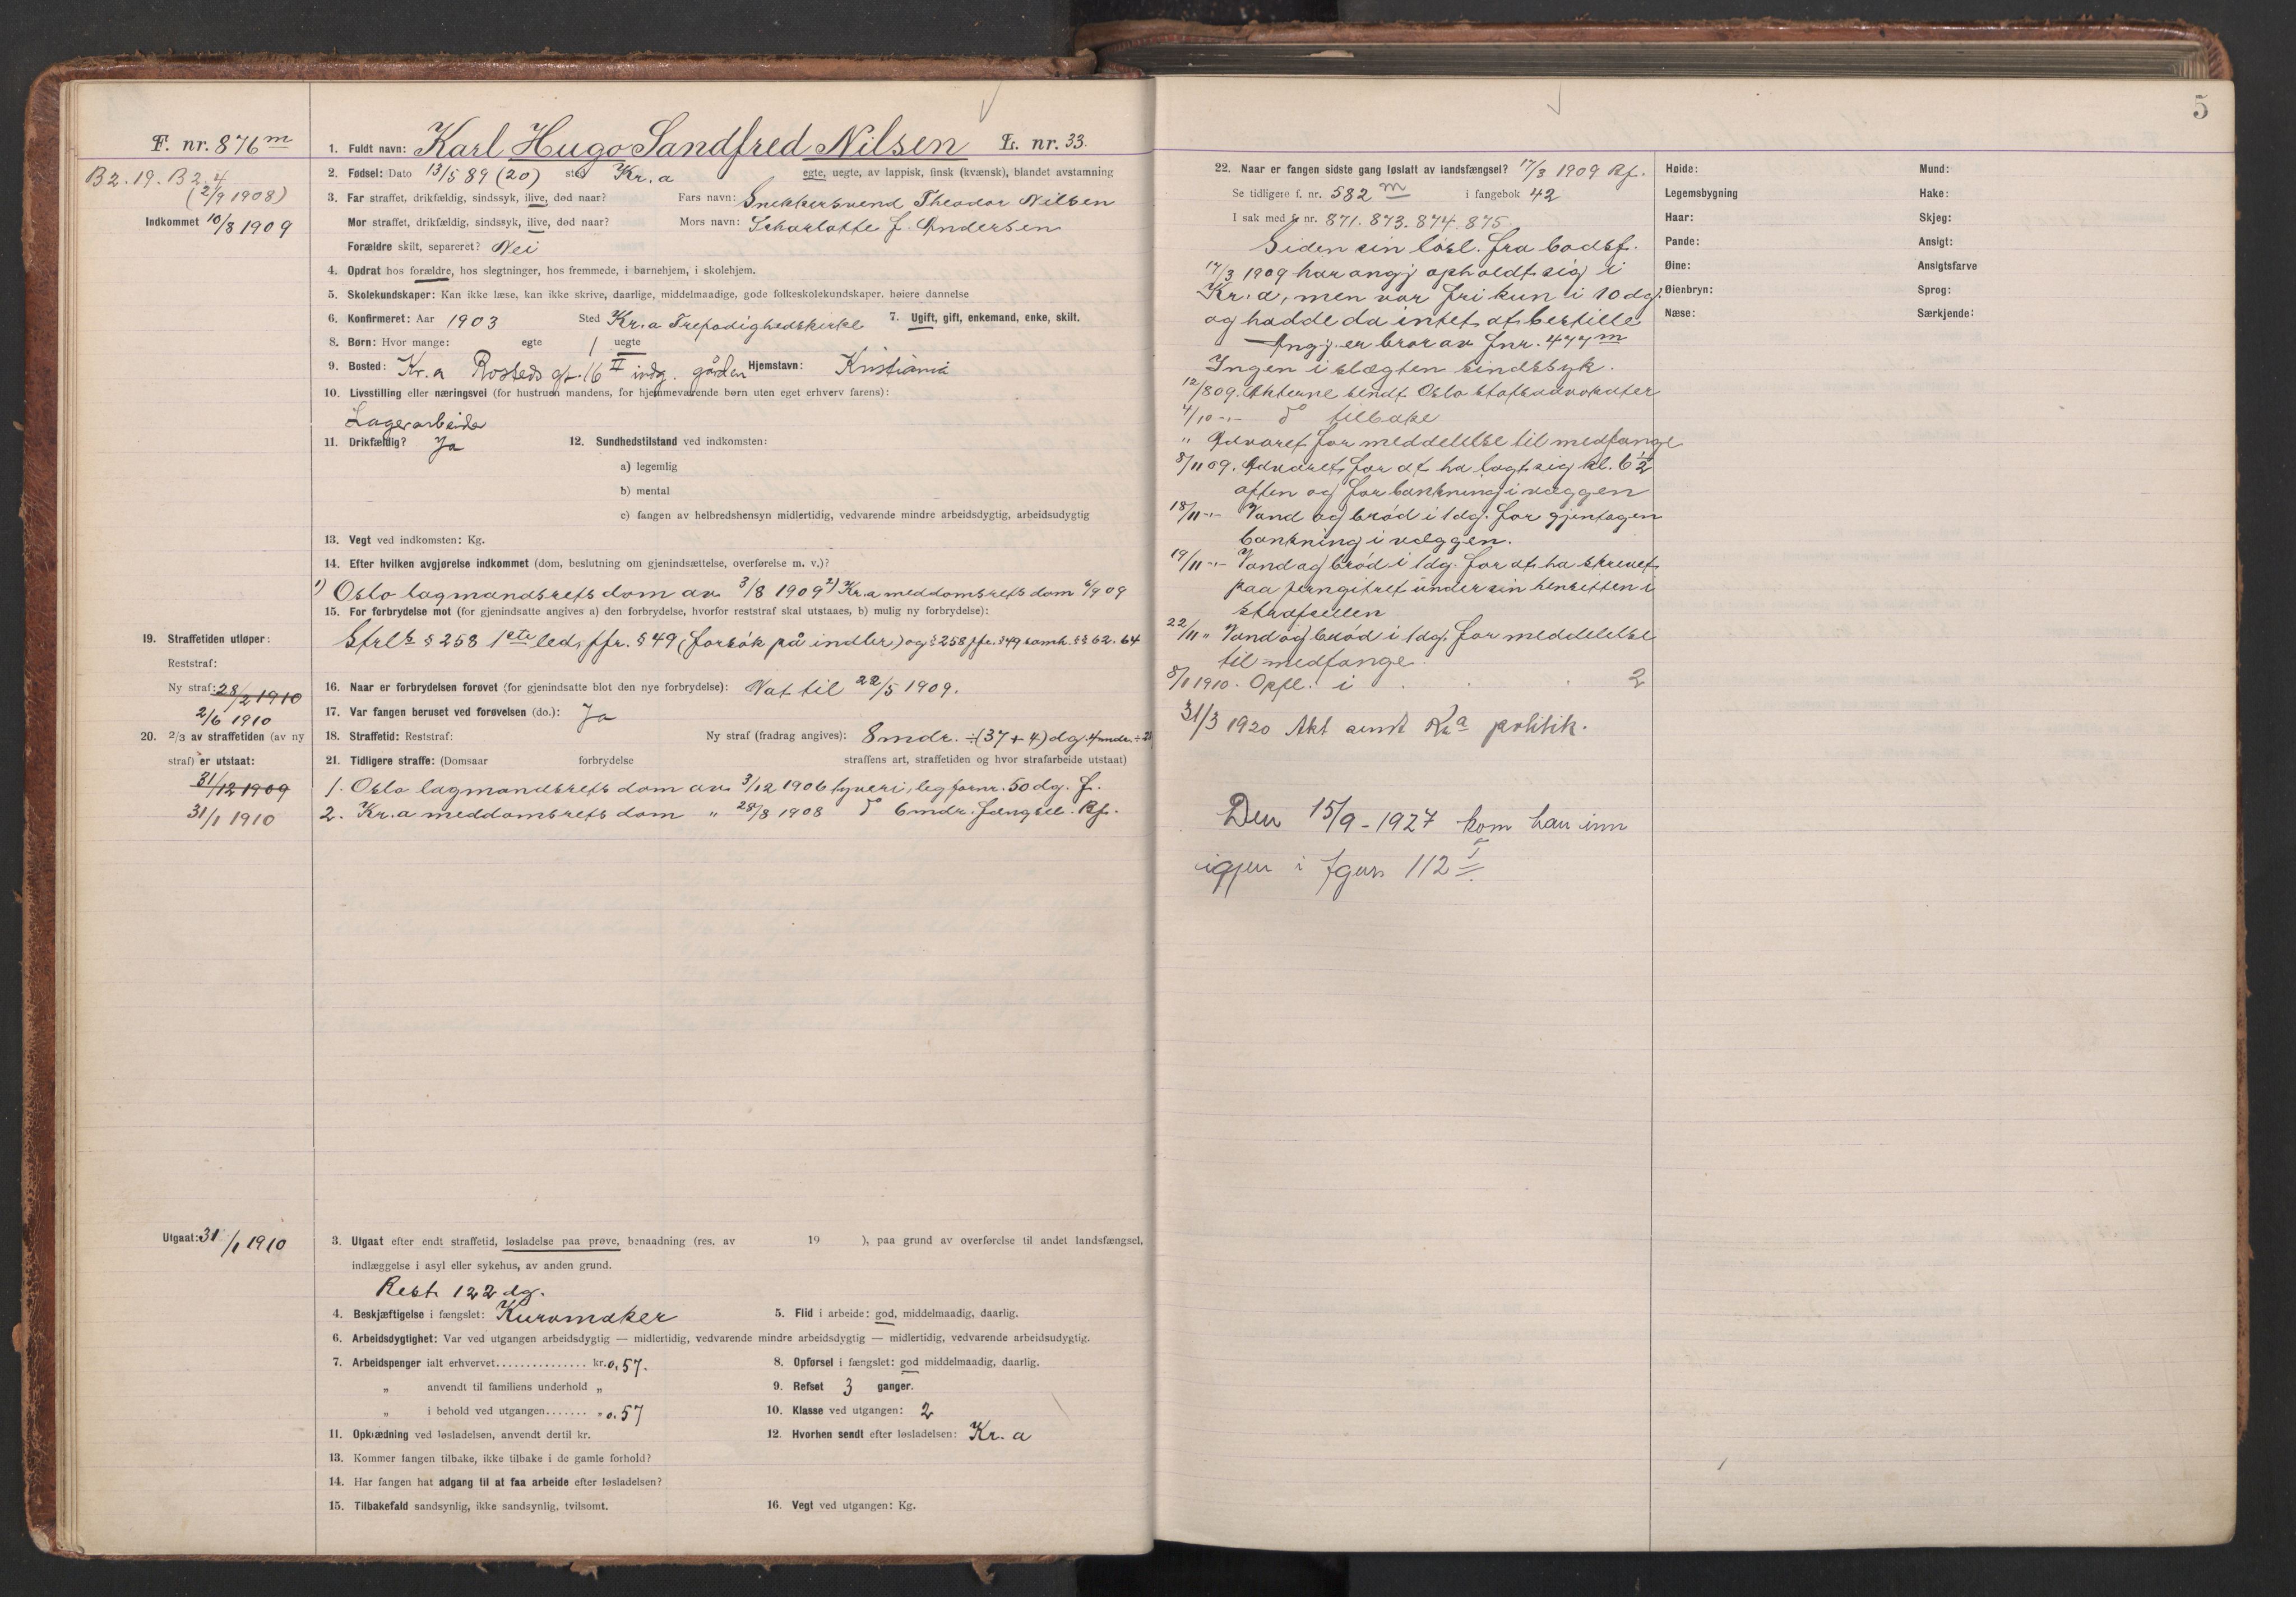 F. nr. 876 m
B2. 19. B2. 4
(2/9 1908)
Indkommet 10/8 1909
1. Fuldt navn: Karl Hugo Sandfred Nilsen L. nr. 33.
2. Fødsel: Dato 13/5 89 (20) sted Kr.a egte, uegte, av lappisk, finsk (kvænsk), blandet avstamning
3. Far straffet, drikfældig, sindssyk, ilive, død naar? Fars navn: Snekkersvend Theodor Nilsen
Mor straffet, drikfældig, sindssyk, ilive, død naar? Mors navn: Scharlotte J. Andersen
Forældre skilt, separeret? Nei
4. Opdrat hos forældre, hos slegtninger, hos fremmede, i barnehjem, i skolehjem.
5. Skolekundskaper: Kan ikke læse, kan ikke skrive, daarlige, middelmaadige, gode folkeskolekundskaper, høiere dannelse
6. Konfirmeret: Aar 1903 Sted Kr.a Trefodighedskirke 7. Ugift, gift, enkemand, enke, skilt.
8. Børn: Hvor mange: egte 1 uegte
9. Bosted: Kr.a Rosteds gt. 16 II indg. gården Hjemstavn: Kristiania
10. Livsstilling eller næringsvei (for hustruen mandens, for hjemmeværende børn uten eget erhverv farens):
Lagerarbeider
11. Drikfældig? Ja 12. Sundhedstilstand ved indkomsten:
a) legemlig
b) mental
c) fangen av helbredshensyn midlertidig, vedvarende mindre arbeidsdygtig, arbeidsudygtig
13. Vegt ved indkomsten: Kg.
14. Efter hvilken avgjørelse indkommet (dom, beslutning om gjenindsættelse, overførelse m. v.)?
1) Oslo lagmandsrets dom av 3/8 1909 2) Kr.a meddomsrets dom 6/9 09
15. For forbrydelse mot (for gjenindsatte angives a) den forbrydelse, hvorfor reststraf skal utstaaes, b) mulig ny forbrydelse):
Strl § 258 1ste led, jfr. § 49 (forsök på indbr.) og § 258 jfr. § 49 samh. §§ 62. 64
19. Straffetiden utløper:
Reststraf:
Ny straf: 28/2 1910
2/6 1910
16. Naar er forbrydelsen forøvet (for gjenindsatte blot den nye forbrydelse): Nat til 22/5 1909.
17. Var fangen beruset ved forøvelsen (do.): Ja
20. 2/3 av straffetiden (av ny
straf) er utstaat:
31/12 1909
31/1 1910
18. Straffetid: Reststraf: Ny straf (fradrag angives): 8 mdr. ÷ (37 + 4) dg. 4 mdr. ÷
21. Tidligere straffe: (Domsaar forbrydelse straffens art, straffetiden og hvor strafarbeide utstaat)
1. Oslo lagmandsrets dom av 3/12 1906 tyveri, leg.fornr. 50 dg. f.
2. Kr.a meddomsrets dom " 28/8 1908 do 6 mdr. fængsel. Bf.
Utgaat: 31/1 1910
3. Utgaat efter endt straffetid, løsladelse paa prøve, benaadning (res. av 19 ), paa grund av overførelse til andet landsfængsel,
indlæggelse i asyl eller sykehus, av anden grund.
Rest. 122 dg.
4. Beskjæftigelse i fængslet: Kurvmaker 5. Flid i arbeide: god, middelmaadig, daarlig.
6. Arbeidsdygtighet: Var ved utgangen arbeidsdygtig — midlertidig, vedvarende mindre arbeidsdygtig — midlertidig, vedvarende arbeidsudygtig.
7. Arbeidspenger ialt erhvervet............... kr. 0,57. 8. Opførsel i fængslet: god middelmaadig, daarlig.
„ anvendt til familiens underhold „ 9. Refset 3 ganger.
„ i behold ved utgangen....... „ 0.57 10. Klasse ved utgangen: 2
11. Opklædning ved løsladelsen, anvendt dertil kr. 12. Hvorhen sendt efter løsladelsen: Kr. a
13. Kommer fangen tilbake, ikke tilbake i de gamle forhold?
14. Har fangen hat adgang til at faa arbeide efter løsladelsen?
15. Tilbakefald sandsynlig, ikke sandsynlig, tvilsomt. 16. Vegt ved utgangen: Kg.
5
22. Naar er fangen sidste gang løslatt av landsfængsel? 17/3 1909 Bf.
Se tidligere f. nr. 582 m i fangebok 42
I sak med f. nr. 871. 873. 874. 875.
Siden sin løsl. fra bodsf.
17/3 1909 har angj. opholdt sig i
Kr.a, men var fri kun i 10 dg.
og hadde da intet at bestille
Angj. er bror av fnr. 477 m
Ingen i slægten sindssyk.
12/8 09. Akterne sendt Oslo statsadvokater
4/10 -"- do tilbake
" Advaret for meddelelse til medfange
8/11 09. Advaret for at ha lagt sig kl. 6 1/2
aften og for bankning i væggen
18/11 -"- Vand og brød i 1 dg. for gjentagen
bankning i væggen.
19/11 -"- Vand og brød i 1 dg. for at ha skrevet
paa jerngitret under sin hensetten i
strafcellen
22/11 " Vand og brød i 1 dg. for meddelelse
til medfange.
8/1 1910. Opfl. i . . . 2
31/3 1920 Akt sendt Kr.a politik.
Den 15/9 - 1927 kom han inn
igjen i fgsn 112 I
Høide: Mund:
Legemsbygning Hake:
Haar: Skjeg:
Pande: Ansigt:
Øine: Ansigtsfarve
Øienbryn: Sprog:
Næse: Særkjende: